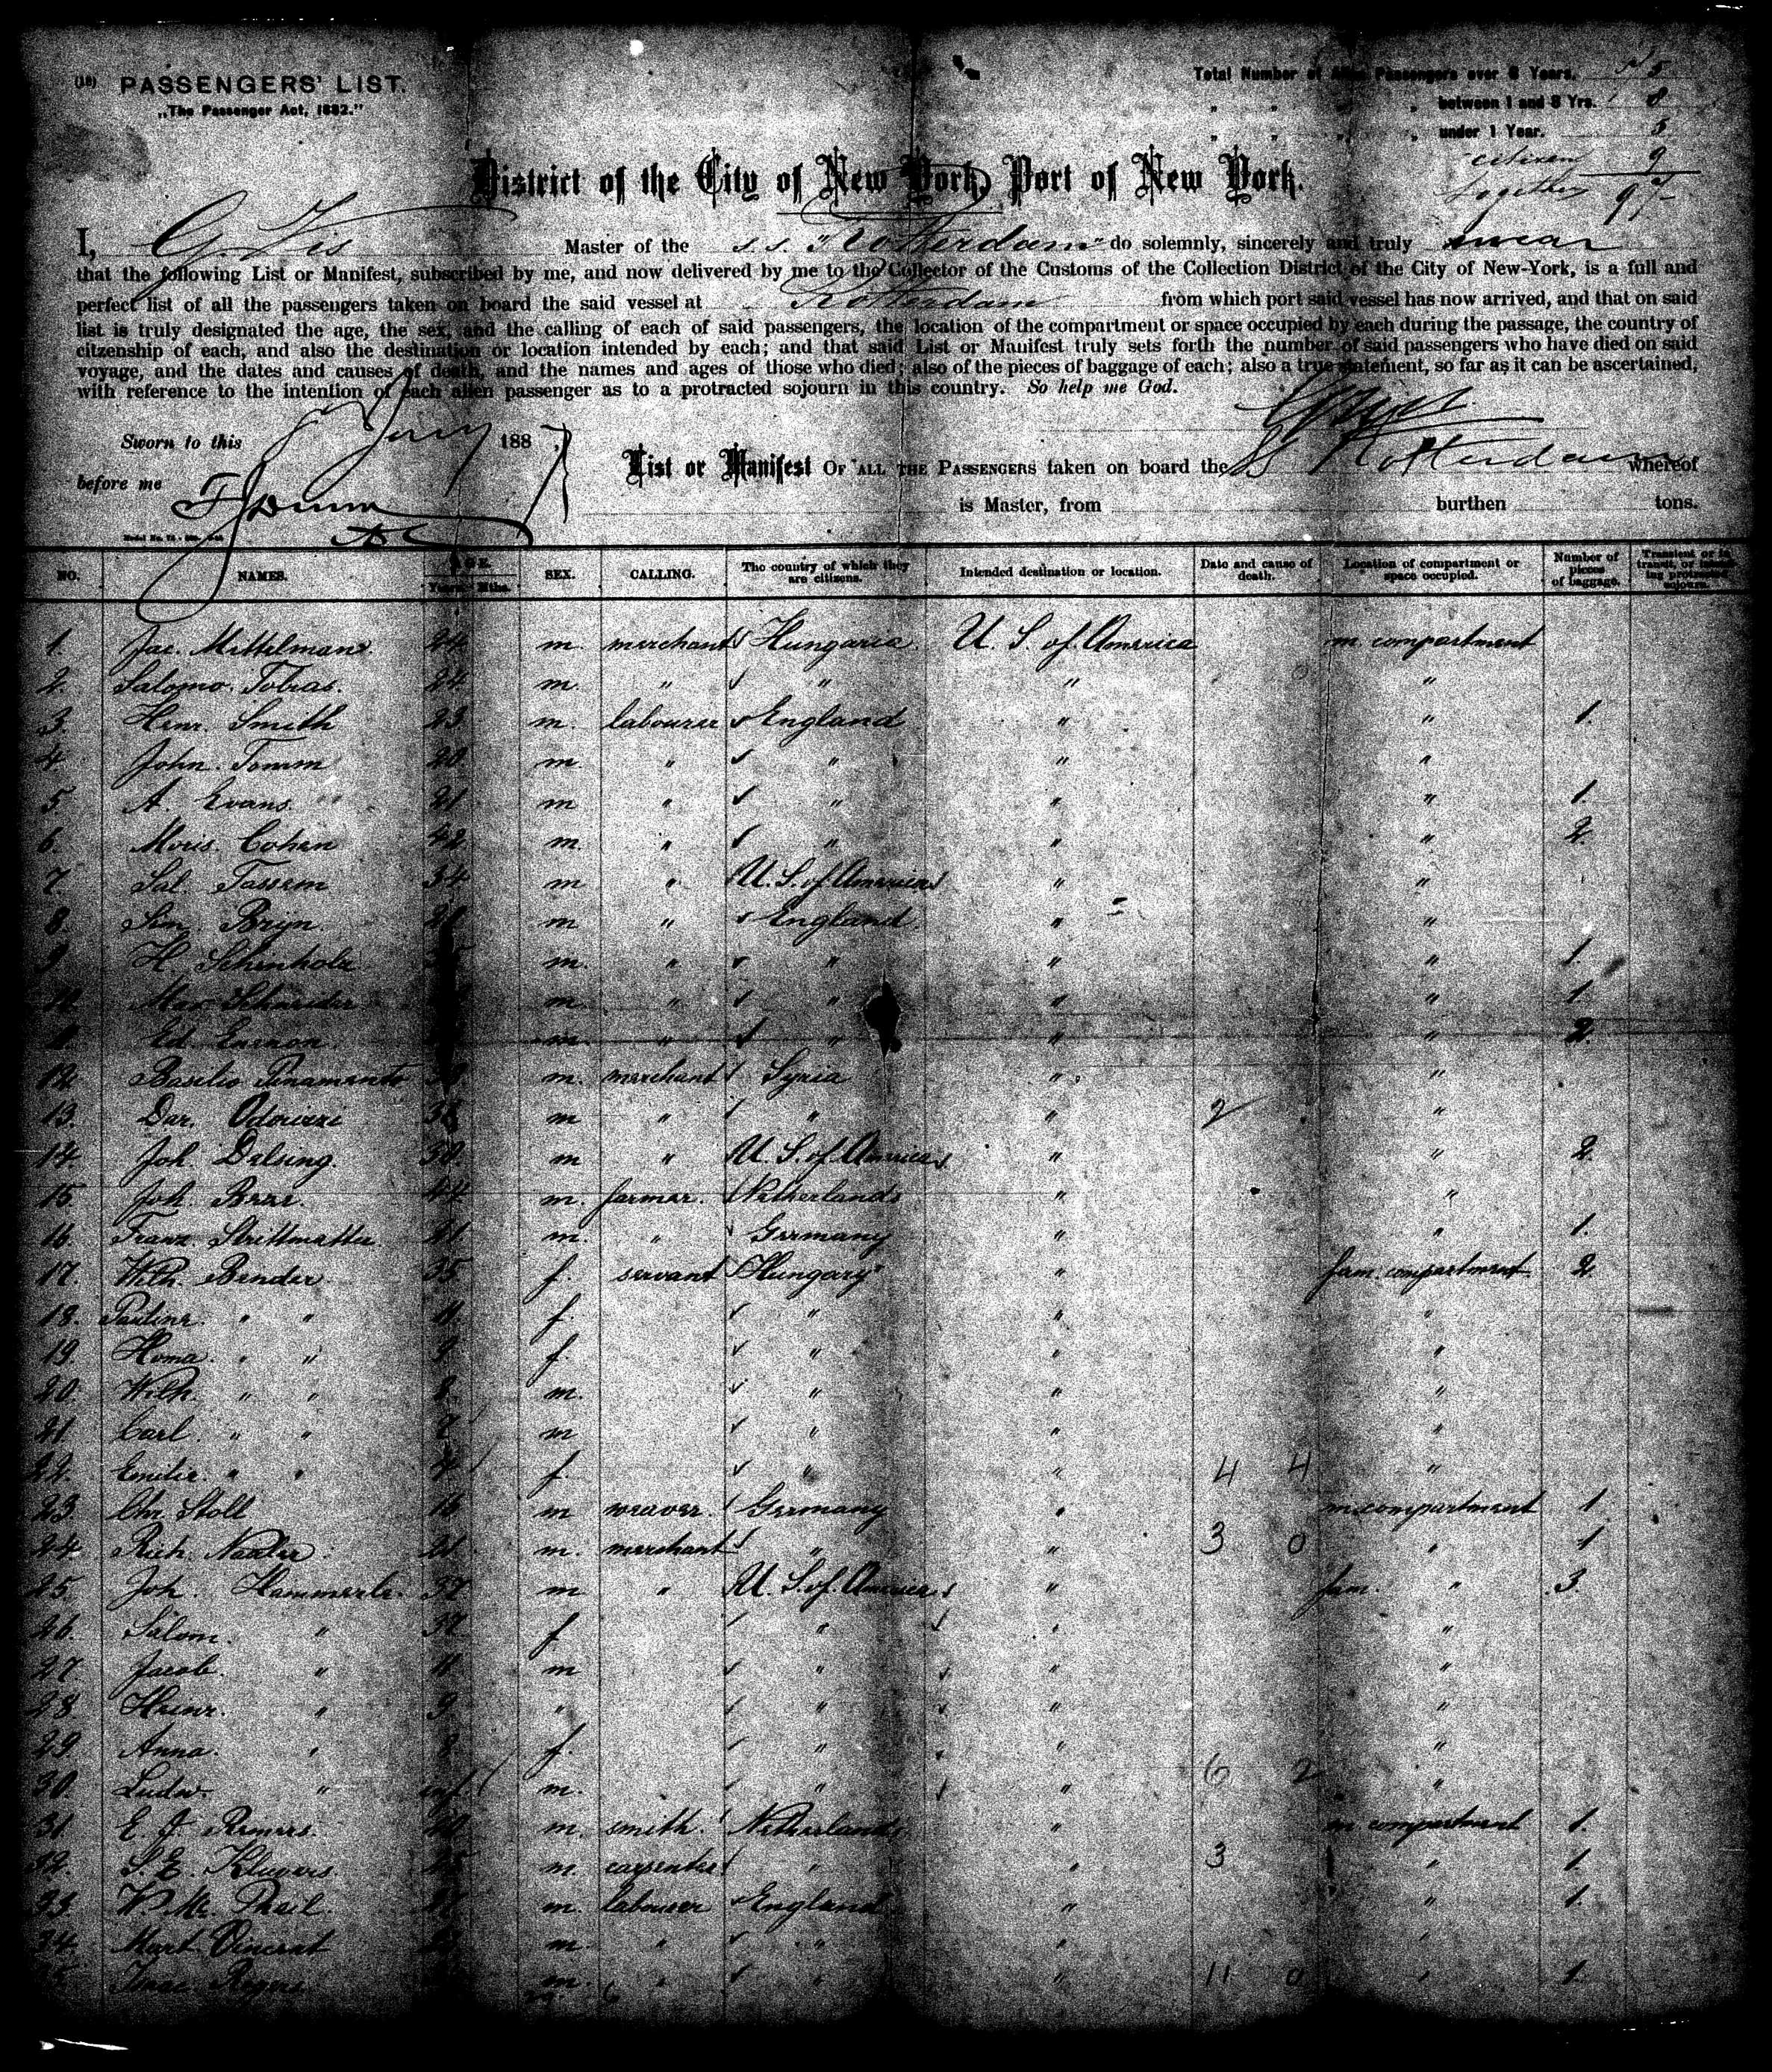 (18) PASSENGERS' LIST.
„The Passenger Act, 1882."
Total Number of Alien Passengers over 8 Years. 75
„ „ „ between 1 and 8 Yrs. 8
„ „ „ „ under 1 Year. 5
citizen 9
together 97
District of the City of New York, Port of New York.
I, G. Vis Master of the s.s. "Rotterdam" do solemnly, sincerely and truly swear
that the following List or Manifest, subscribed by me, and now delivered by me to the Collector of the Customs of the Collection District of the City of New-York, is a full and
perfect list of all the passengers taken on board the said vessel at Rotterdam from which port said vessel has now arrived, and that on said
list is truly designated the age, the sex, and the calling of each of said passengers, the location of the compartment or space occupied by each during the passage, the country of
citzenship of each, and also the destination or location intended by each; and that said List or Manifest truly sets forth the number of said passengers who have died on said
voyage, and the dates and causes of death, and the names and ages of those who died; also of the pieces of baggage of each; also a true statement, so far as it can be ascertained,
with reference to the intention of each alien passenger as to a protracted sojourn in this country. So help me God.
Sworn to this 188
before me
List or Manifest OF ALL THE PASSENGERS taken on board the SS Rotterdam whereof
is Master, from burthen tons.
NO. NAMES. AGE. Years. Mths. SEX. CALLING. The country of which they are citizens. Intended destination or location. Date and cause of death. Location of compartment or space occupied. Number of pieces of baggage. Transient or in transit, or intending protracted sojourn.
1. Jac. Mittelmann. 24 m. merchant Hungaria. U. S. of America m. compartment
2. Salomo. Tobias. 24. m. " " " "
3. Henr. Smith 23 m. labourer England " " 1.
4. John. Tomm 20. m. " " " "
5. A. Evans. 21 m " " " " 1.
6. Moris. Cohen 42 m. " " " " 2.
7. Sal. Tassem 34 m " U. S. of America " "
8. Sim. Bryn. m " England. " "
9. H. Scheinholz m. " " " " 1.
10. Max. Schneider m. " " " " 1.
11 Ed. m. " " " " 2.
12. Basilio m. merchant Syria " "
13. Dar. 35 m " " " 2 "
14. Joh. Delsing. 30. m " U. S. of America " " 2.
15. Joh. 44 m. farmer. Netherlands " "
16. Franz. Strittmatter. 21. m. " Germany " " 1.
17. Wilh. Bender. 35 f. servant Hungary " fam. compartment. 2
18. Pauline. " " 11. f. " " "
19. " " 9. f. " " "
20. Wilh. " " 8. m. " " "
21. Carl. " " m " " "
22. Emilie. " " f. " " 4 4 "
23. Chr. Stoll m weaver. Germany " m compartment 1
24. Rich. 21. m. merchant " " 3 0 " 1
25. Joh. Hammerle. 37 m " U. S. of America " fam. " 3.
26. Salom. " 37 f " " "
27 Jacob. " 11 m " " "
28. Heinr. " 9. " " " "
29 Anna. " f. " " "
30. Ludw. " inf. m. " " 6 2 "
31. E. J. Remers. m. smith. Netherlands " m compartment 1.
32. S. E. Kluvers. m. carpenter " " 3 " 1.
33. m. labourer England " " 1.
34. Mart. Vincent m. " " " "
35. Rogers m. " " " 11 0 " 1.